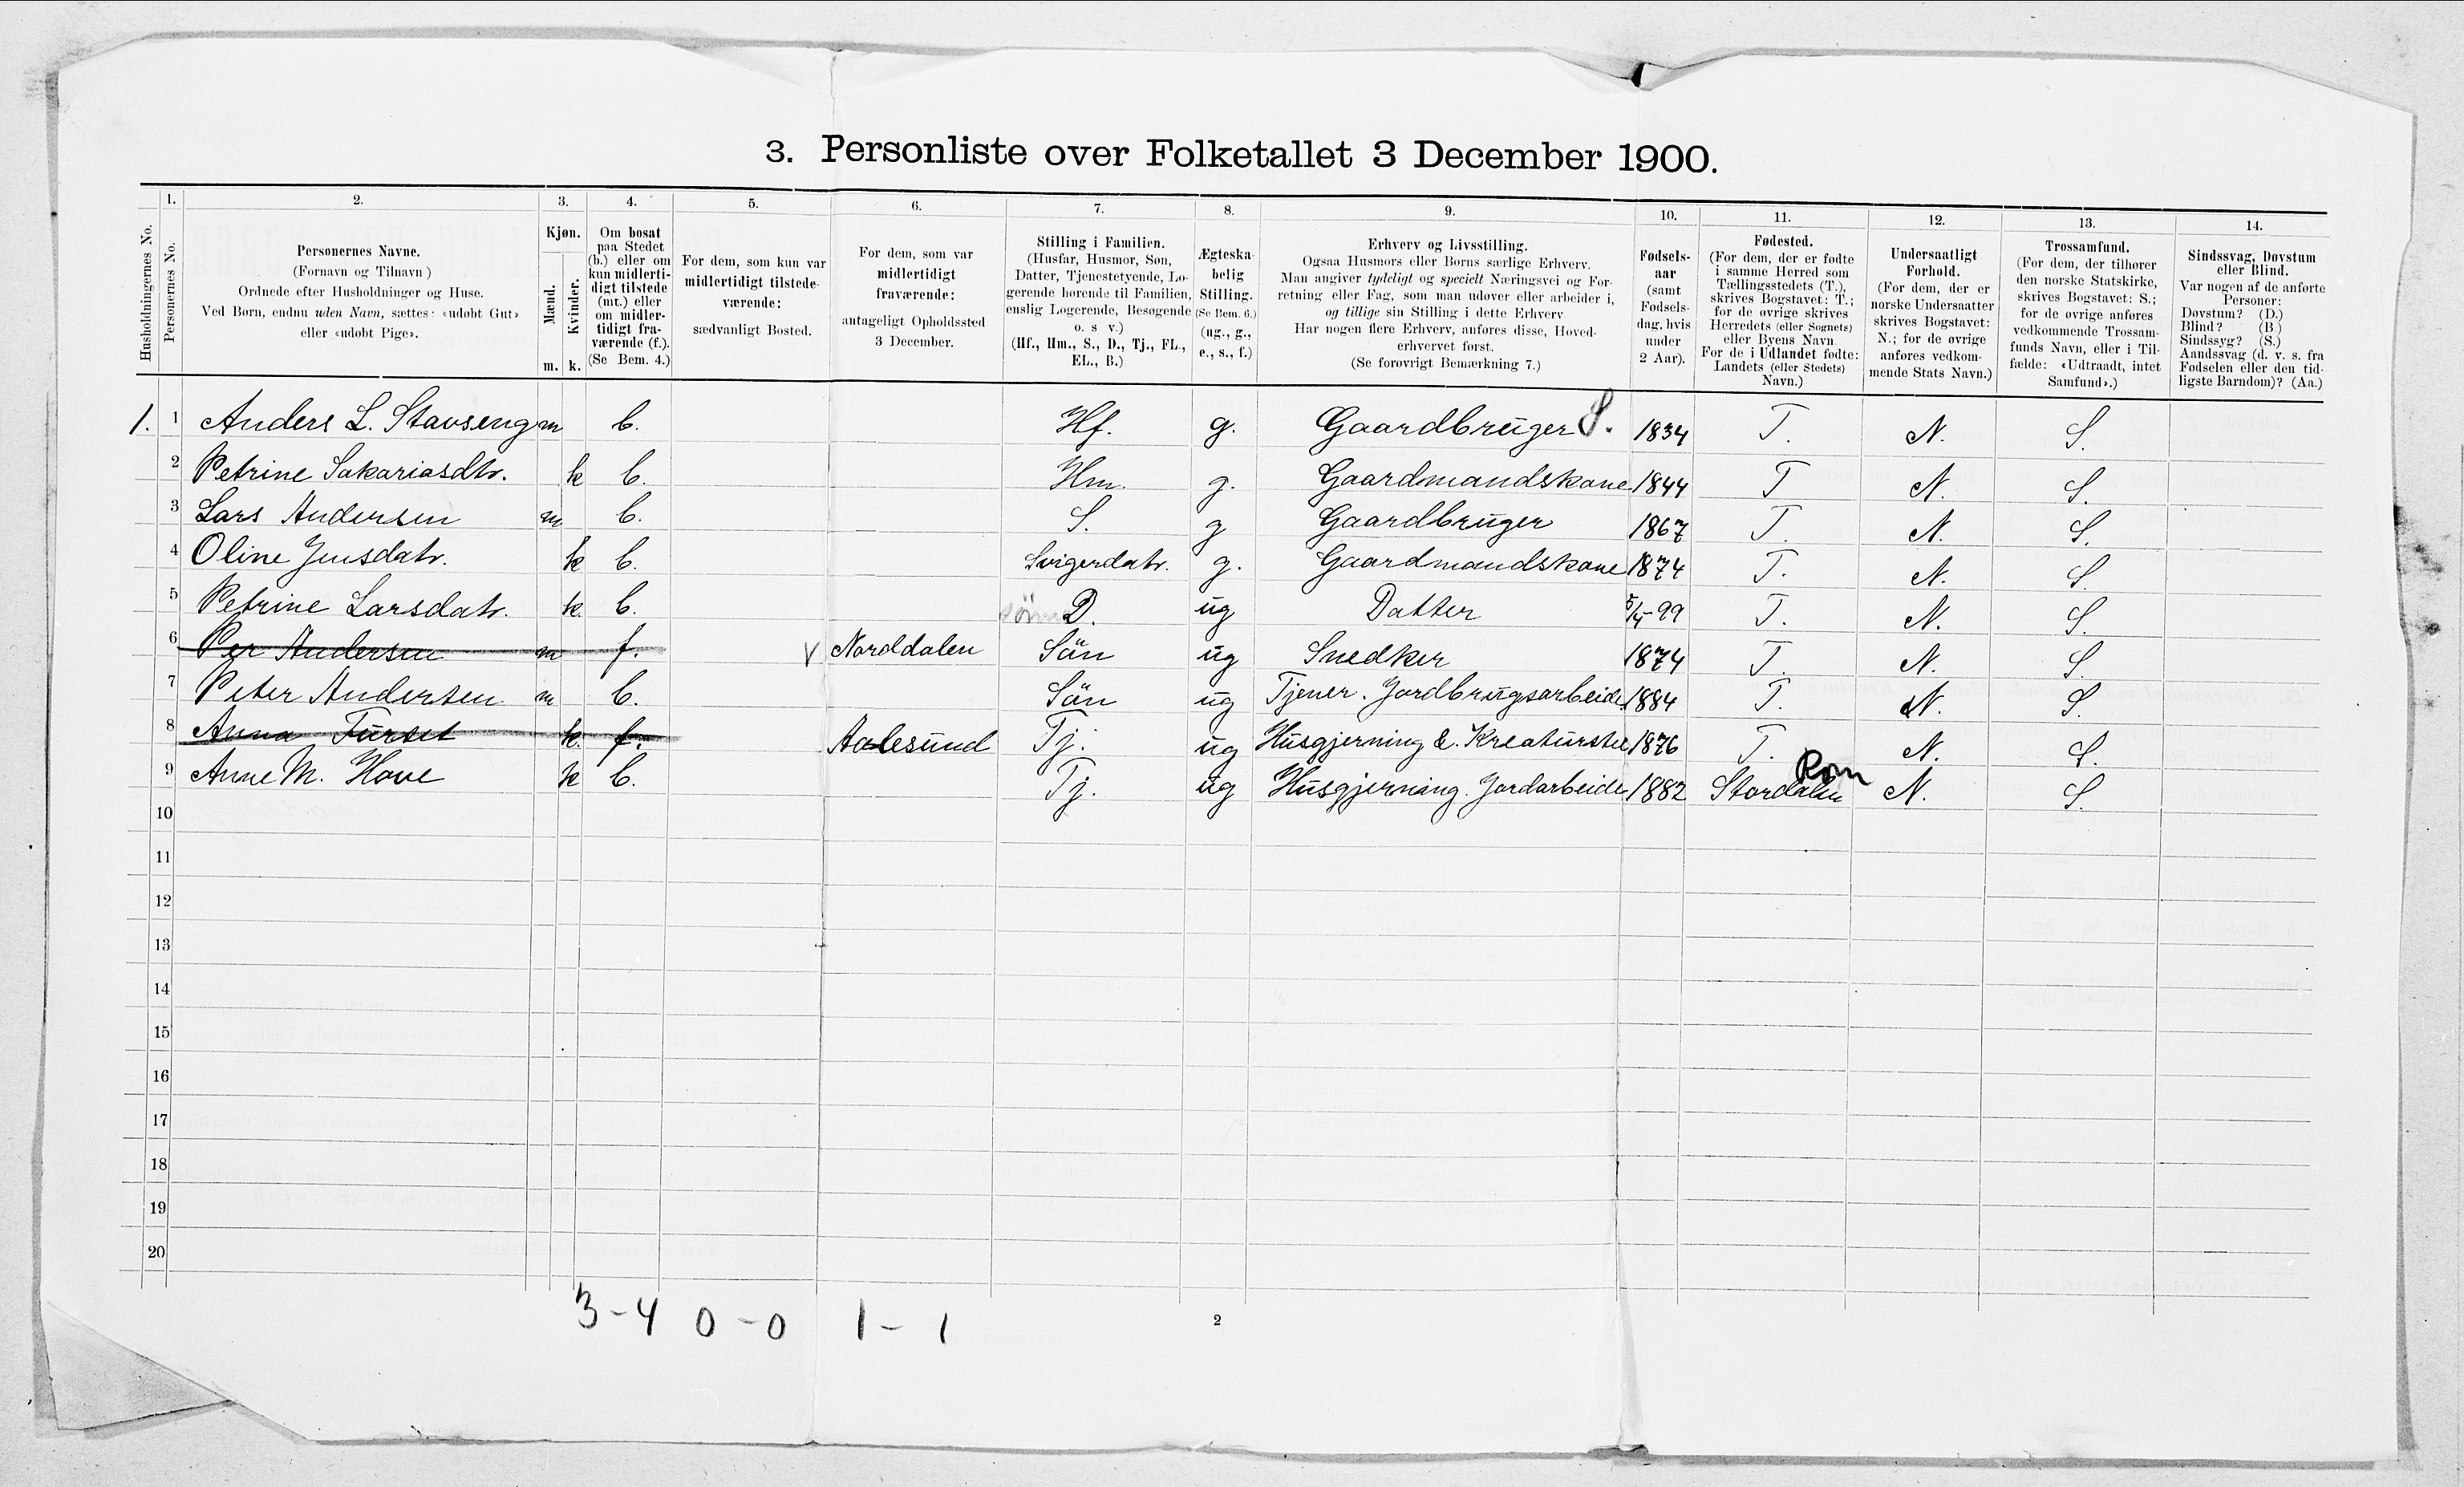 3. Personliste over Folketallet 3 December 1900.
Husholdningernes No.
1.
Personernes No.
2.
Personernes Navne.
(Fornavn og Tilnavn )
Ordnede efter Husholdninger og Huse.
Ved Børn, endnu uden Navn, sættes: «udøbt Gut»
eller «udøbt Pige».
3.
Kjøn.
Mænd.
Kvinder.
m. k.
4.
Om bosat
paa Stedet
(b.) eller om
kun midlerti-
digt tilstede
(mt.) eller
om midler-
tidigt fra-
værende (f.).
(Se Bem. 4.)
5.
For dem, som kun var
midlertidigt tilstede-
værende:
sædvanligt Bosted.
6.
For dem, som var
midlertidigt
fraværende:
antageligt Opholdssted
3 December.
7.
Stilling i Familien.
(Husfar, Husmor, Søn,
Datter, Tjenestetyende, Lo-
gerende hørende til Familien,
enslig Logerende, Besøgende
o. s v.)
(Hf., Hm., S., D., Tj., FL.,
EL., B.)
8.
Ægteska-
belig
Stilling.
(Se Bem. 6.)
(ug., g.,
e., s., f.)
9.
Erhverv og Livsstilling.
Ogsaa Husmors eller Børns særlige Erhverv.
Man angiver tydeligt og specielt Næringsvei og For-
retning eller Fag, som man udøver eller arbeider i,
og tillige sin Stilling i dette Erhverv
Har nogen flere Erhverv, anføres disse, Hoved-
erhvervet først.
(Se forøvrigt Bemærkning 7.)
10.
Fødsels-
aar
(samt
Fødsels-
dag, hvis
under
2 Aar).
11.
Fødested.
(For dem, der er fødte
i samme Herred som
Tællingsstedets (T.),
skrives Bogstavet: T.;
for de øvrige skrives
Herredets (eller Sognets)
eller Byens Navn
For de i Udlandet fødte:
Landets (eller Stedets)
Navn.)
12.
Undersaatligt
Forhold.
(For dem, der er
norske Undersaatter
skrives Bogstavet:
N.; for de øvrige
anføres vedkom-
mende Stats Navn.)
13.
Trossamfund.
(For dem, der tilhører
den norske Statskirke,
skrives Bogstavet: S.;
for de øvrige anføres
vedkommende Trossam-
funds Navn, eller i Til-
fælde: «Udtraadt, intet
Samfund».)
14.
Sindssvag, Døvstum
eller Blind.
Var nogen af de anførte
Personer:
Døvstum? (D.)
Blind? (B.)
Sindssyg? (S.)
Aandssvag (d. v. s. fra
Fødselen eller den tid-
ligste Barndom)? (Aa.)
1. 1 Anders L. Stavseng m b. Hf. g. Gaardbruger S. 1834 T. N. S.
2 Petrine Sakariasdtr. k b. Hm. g. Gaardmandskone 1844 T N. S.
3 Lars Andersen m b. S. g Gaardbruger 1867 T. N. S.
4 Oline Jensdatr. k b. Svigerdatr. g. Gaardmandskone 1874 T. N. S
5 Petrine Larsdatr. k. b. D. ug Datter 5/4-99 T. N. S.
6 Per Andersen m f. V Norddalen Sön ug Snedker 1874 T. N. S.
7 Peter Andersen m b. Sön ug Tjener. Jordbrugsarbeide 1884 T. N. S.
8 Anna Furset k. f. Aalesund Tj. ug Husgjerning &. Kreaturstel 1876 T. N. S.
Rom
9 Anne M. Hove k b. Tj. ug Husgjerning. Jordarbeide 1882 Stordalen N. S.
10
11
12
13
14
15
16
17
18
19
20
3-4 0-0 1-1
2